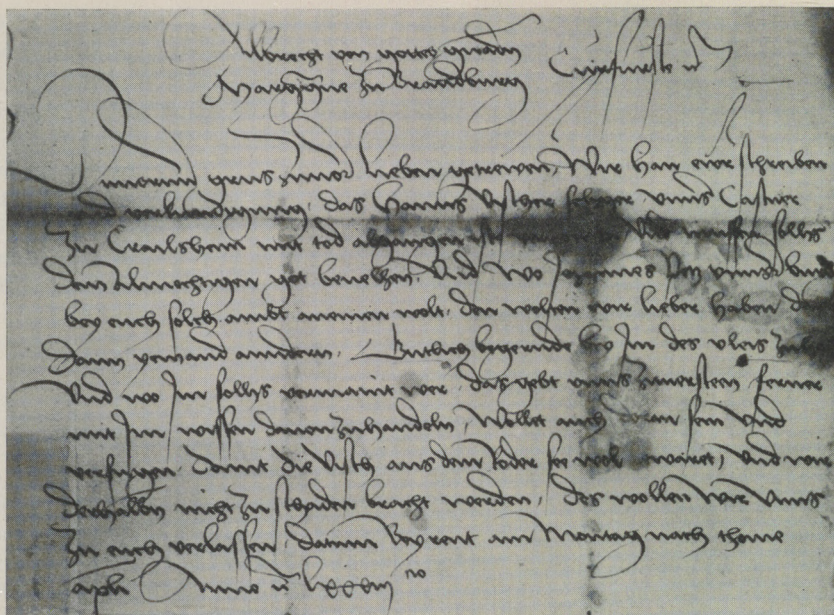 Albrecht von gottes gnaden
Marggraue zu Brandburg Curfurste &c
Unnsern grus zuuor Lieben getrewen, Wir han ewer schreiben
und verkundigung, das Hanns Vischer unns Castner
zu Crailsheim mit tod abgangen ist mussen sollhs
dem Almechtigen got beuelhen, Und wo Johannes
bey euch solch ambt annemen wolt, den wolten wir lieber haben
dann yemand anndern, Gutlich begerende bey Im des vleis
Und wo Im sollhs vermaint wer, das gebt unns zuuersteen ferner
mit Im wissen dauon zuhandeln, Wollet auch daran sein und
verfugen damit die Visch aus dem see wol bewaret, Und wir
deßhalbn nicht zu schaden bracht werden, des wollen wir unns
zu euch verlassen, datum Beyreut am Montag nach thome
apli Anno &c lxxxiii